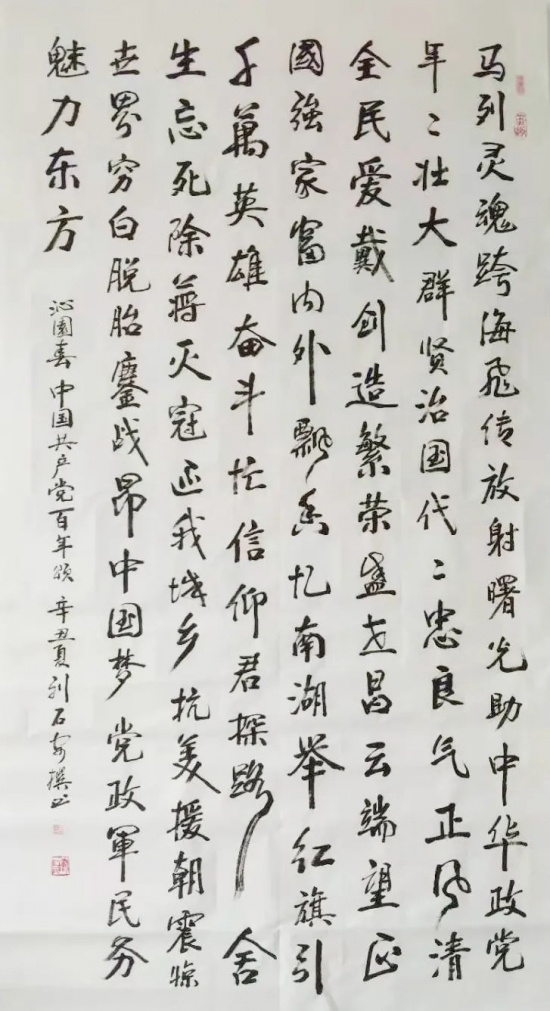 马列灵魂跨海飞传放射曙光助中华政党
年々壮大群贤治国代々忠良气正风清
全民爱戴创造繁荣盛世昌云端望正
國強家富内外飘香忆南湖举红旗引
千萬英雄奋斗忙信仰君探路舍
生忘死除蒋灭寇还我城乡抗美援朝震惊
世界穷白脱胎鏖战昂中国梦党政軍民务
魅力东方
沁園春中国共产党百年颂辛丑夏撰书